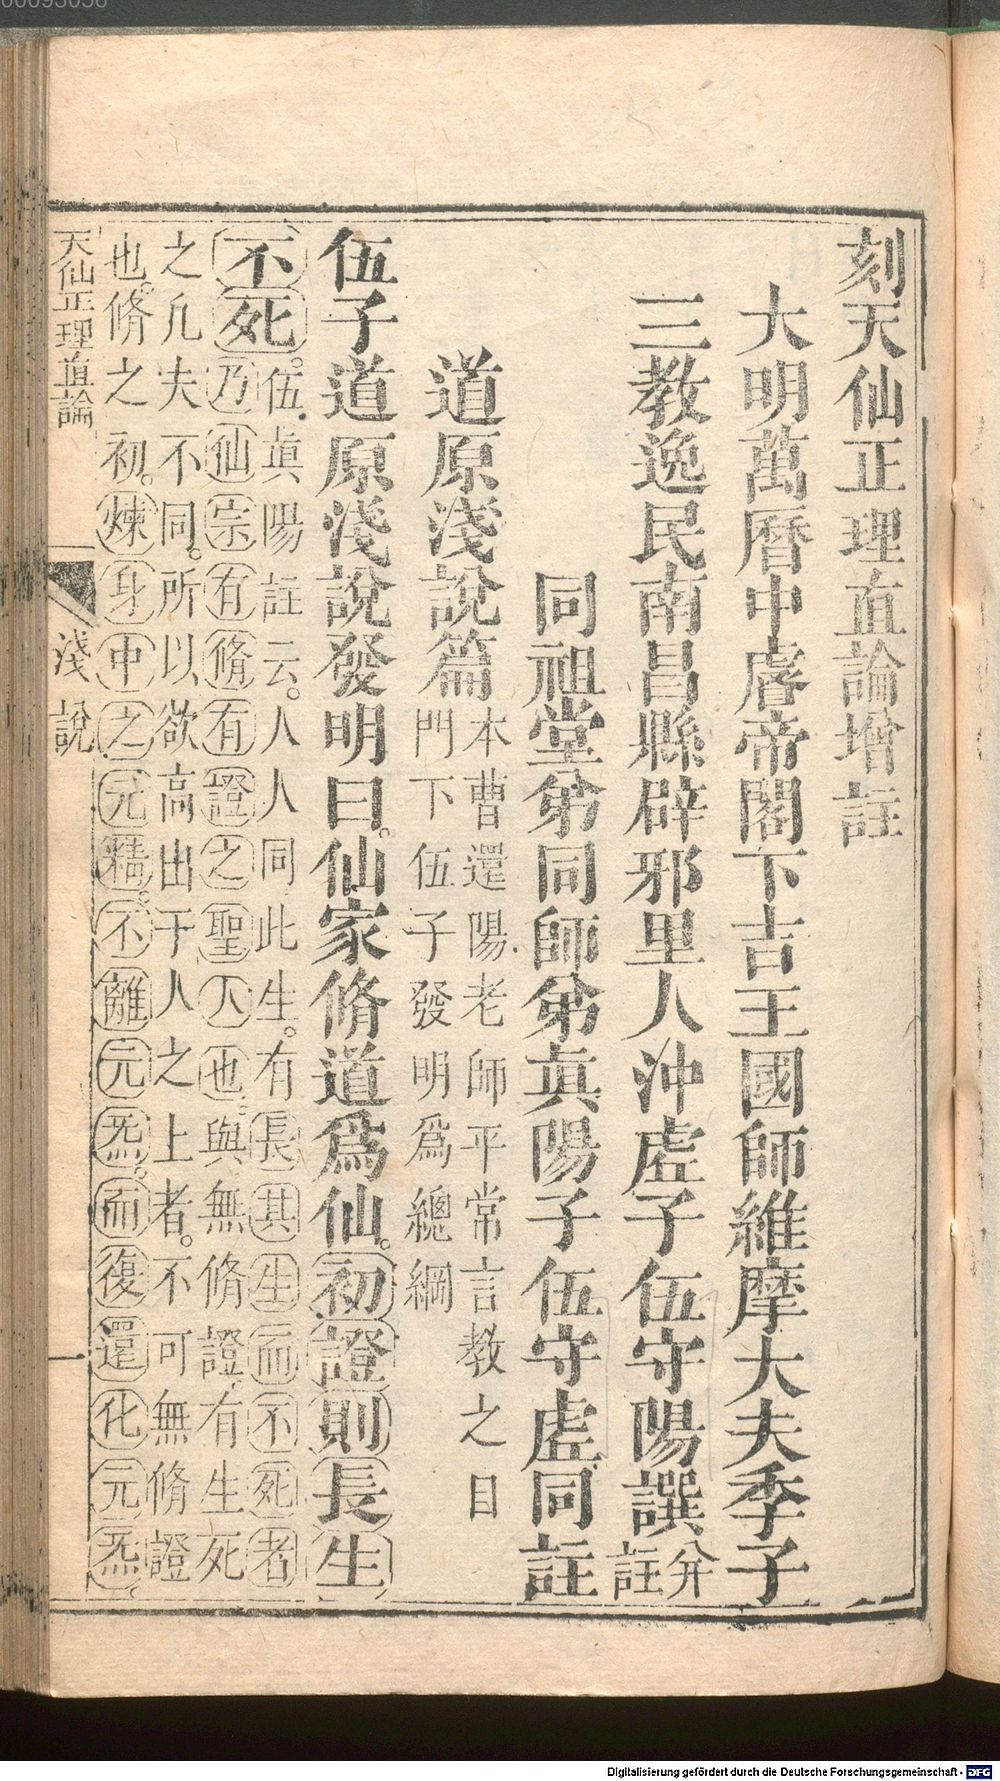 刻天仙正理直論增註
大明萬曆中睿帝閣下吉王國師維摩大夫季子
三教逸民南昌縣辟邪里人沖虛子伍守陽譔幷註
同祖堂弟同師弟眞陽子伍守虛同註
道原淺說篇本曹還陽老師平常言教之目
門下伍子發明爲總綱
伍子道原淺說發明曰。仙家脩道爲仙。初證則長生
不死。伍眞陽註云。人人同此生。有長其生而不死者
乃仙宗有脩有證之聖人也。與無脩證有生死
之凢夫不同。所以欲高出于人之上者。不可無脩證
也。脩之初。煉身中之元精。不離元炁。而復還化元炁。
天仙正理直論
淺說
一
00093058
Digitalisierung gefördert durch die Deutsche Forschungsgemeinschaft - DFG